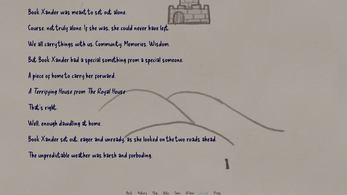 Book Xander was meant to set out alone.
Course, not truly alone. If she was, she could never have left.
We all carry things with us. Community. Memories. Wisdom.
But Book Xander had a special something from a special someone.
A piece of home to carry her forward.
A Terrifying House from The Royal House
That's right.
Well, enough dawdling at home.
Book Xander set out, eager and unready as she looked on the two roads ahead.
The unpredictable weather was harsh and forboding.